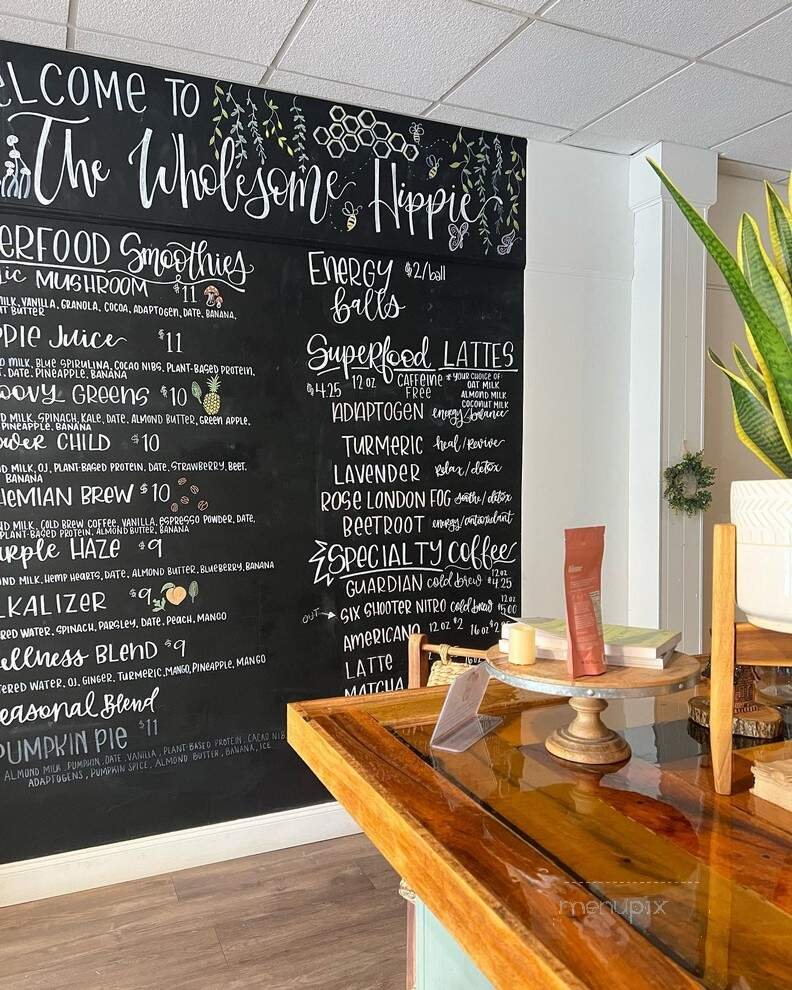 ELCOME TO
The Wholesome Hippie
ERFOOD Smoothies
IC MUSHROOM $11
MILK, VANILLA, GRANOLA, COCOA, ADAPTOGEN, DATE, BANANA,
T BUTTER
PPIE Juice $11
D MILK, BLUE SPIRULINA, COCAO NIBS, PLANT-BASED PROTEIN,
DATE, PINEAPPLE, BANANA
OOVY GREENS $10
D MILK, SPINACH, KALE, DATE, ALMOND BUTTER, GREEN APPLE,
PINEAPPLE, BANANA
OWER CHILD $10
D MILK, OJ, PLANT-BASED PROTEIN, DATE, STRAWBERRY, BEET,
BANANA
HEMIAN BREW $10
ND MILK, COLD BREW COFFEE, VANILLA, ESPRESSO POWDER, DATE,
PLANT-BASED PROTEIN, ALMOND BUTTER, BANANA
URPLE HAZE $9
ND MILK, HEMP HEARTS, DATE, ALMOND BUTTER, BLUEBERRY, BANANA
LKALIZER $9
RED WATER, SPINACH, PARSLEY, DATE, PEACH, MANGO
ELLNESS BLEND $9
TERED WATER, OJ, GINGER, TURMERIC, MANGO, PINEAPPLE, MANGO
Seasonal Blend
PUMPKIN PIE $11
ALMOND MILK, PUMPKIN, DATE, VANILLA, PLANT-BASED PROTEIN, CACAO NIB
ADAPTOGENS, PUMPKIN SPICE, ALMOND BUTTER, BANANA, ICE
ENERGY $2/ball
balls
Superfood LATTES
$4.25 12 OZ CAFFEINE FREE
*YOUR CHOICE OF:
OAT MILK
ALMOND MILK
COCONUT MILK
ADAPTOGEN energy/balance
TURMERIC heal/revive
LAVENDER relax/detox
ROSE LONDON FOG soothe/detox
BEETROOT energy/antioxidant
SPECIALTY Coffee
GUARDIAN cold brew 12 OZ $4.25
OUT → SIX SHOOTER NITRO cold brew 12 OZ $5.00
AMERICANO 12 OZ $2 16 OZ
LATTE
MATCHA
menupix